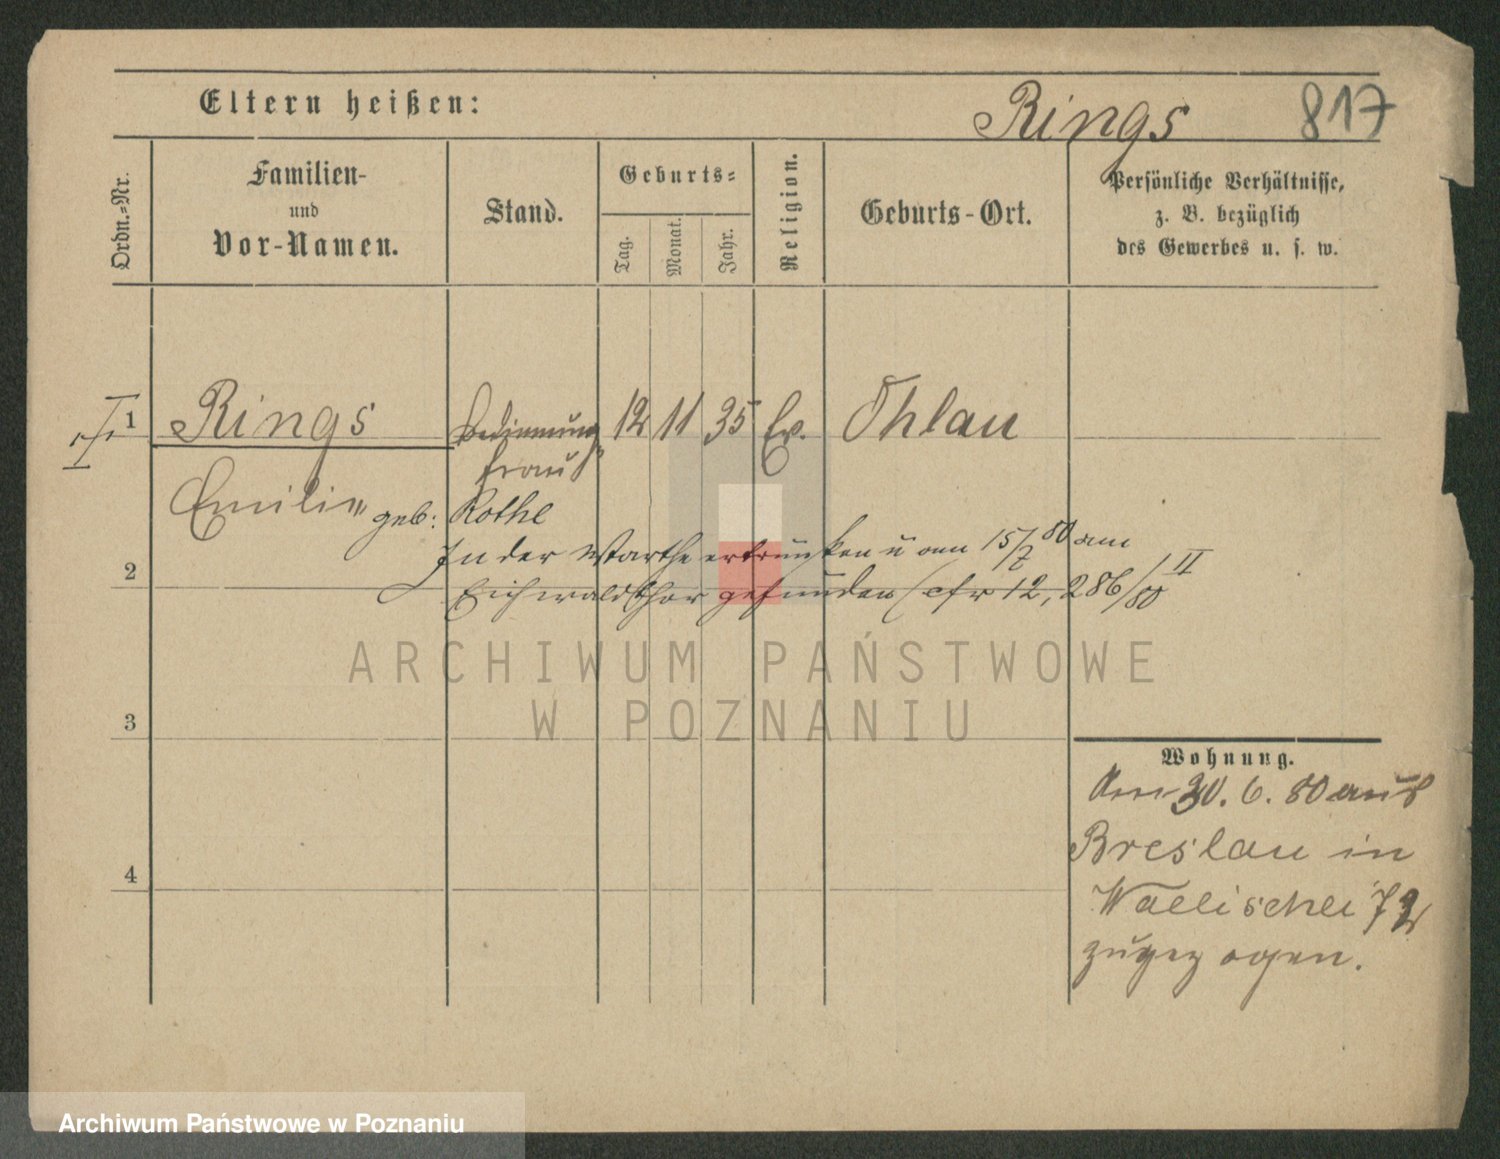 Eltern heißen:
Rings 817
Ordn.-Nr.
Familien-
und
Vor-Namen.
Stand.
Geburts-
Tag.
Monat.
Jahr.
Religion.
Geburts-Ort.
Persönliche Verhältnisse,
z. B. bezüglich
des Gewerbes u. s. w.
1 Rings 12 11 35 Ev. Ohlau
frau
Emilie geb: Rothe
In der Warthe ertrunken u am 15/7 80 am
2
Eichwaldthor gefunden cfr 12, 286/80 II
ARCHIWUM PAŃSTWOWE
W POZNANIU
3
Wohnung.
Am 30. 6. 80 aus
Breslau in
4
Wallischei 72
zugezogen.
Archiwum Państwowe w Poznaniu